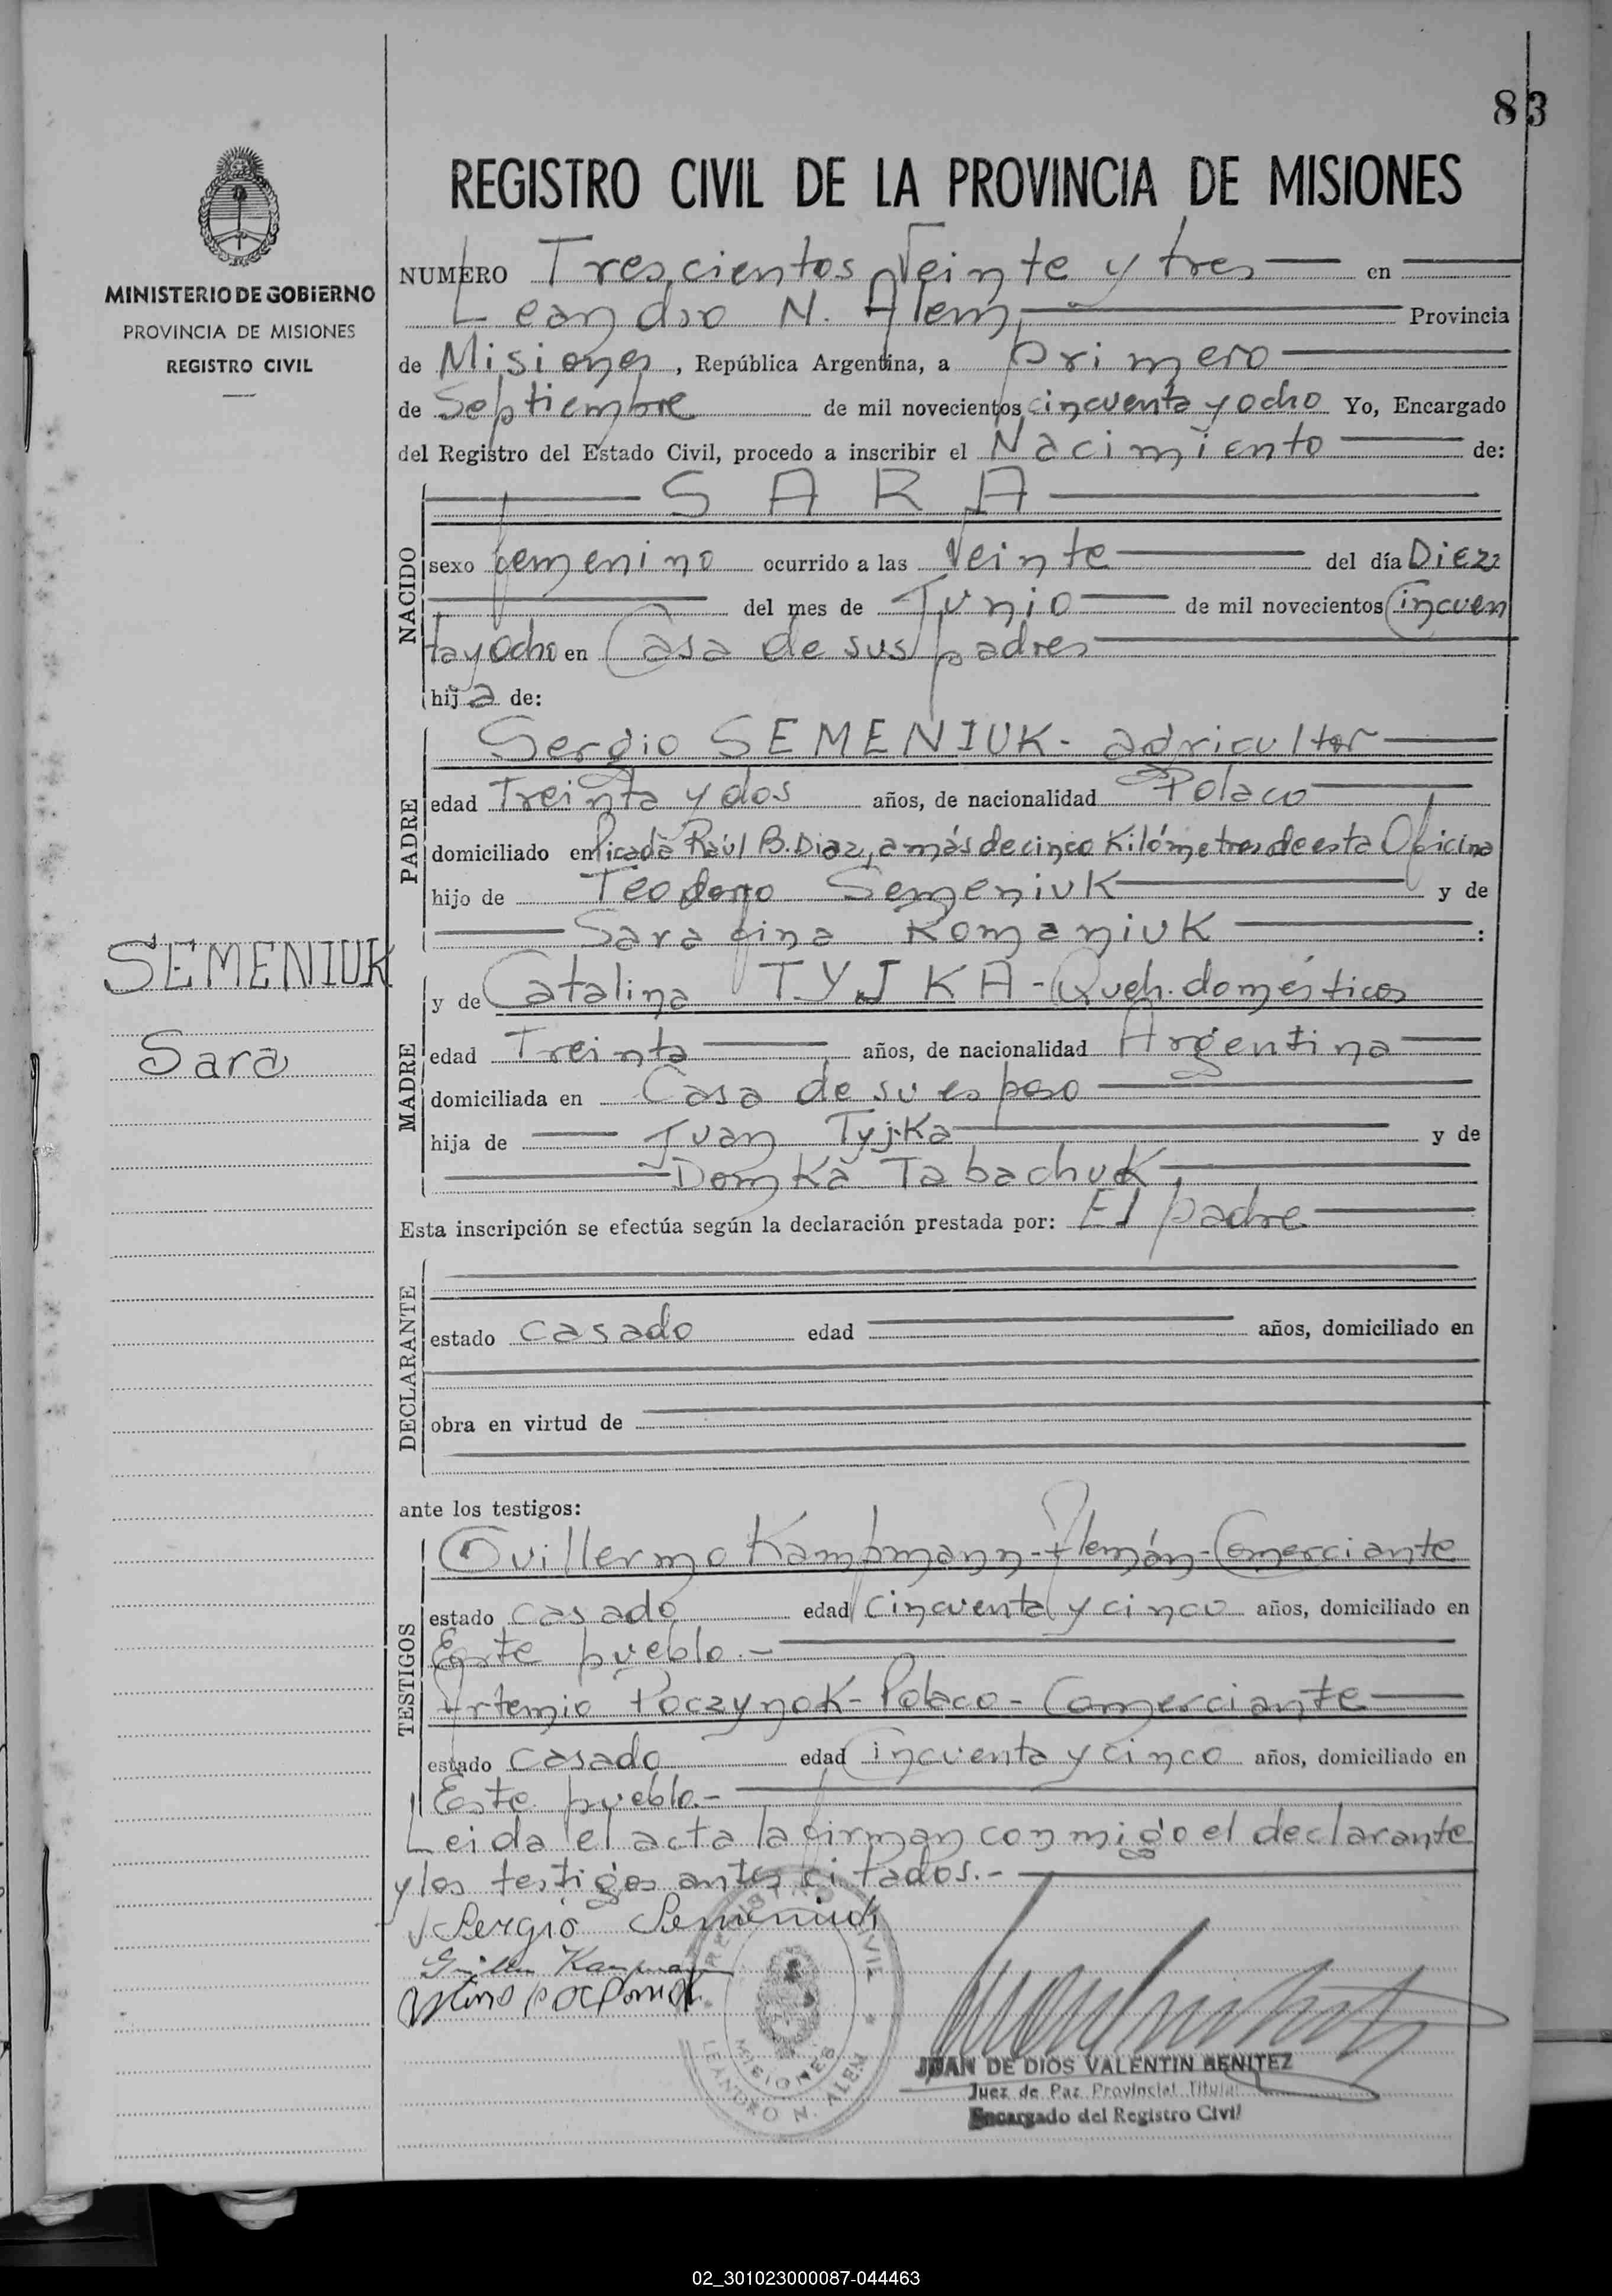 83
MINISTERIO DE GOBIERNO
PROVINCIA DE MISIONES
REGISTRO CIVIL
SEMENIUK
Sara
REGISTRO CIVIL DE LA PROVINCIA DE MISIONES
NUMERO Trescientos Veinte y tres en
Leandro N. Alem, Provincia
de Misiones, República Argentina, a primero
de Septiembre de mil novecientos cincuenta y ocho Yo, Encargado
del Registro del Estado Civil, procedo a inscribir el Nacimiento de:
NACIDO
SARA
sexo femenino ocurrido a las Veinte del día Diez
del mes de Junio de mil novecientos Cincuen
ta y Ocho en Casa de sus padres
hija de:
PADRE
Sergio SEMENIUK- agricultor
edad Treinta y dos años, de nacionalidad Polaco
domiciliado en Picada Raúl B. Diaz, a más de cinco Kilómetros de esta Oficina
hijo de Teodoro Semeniuk y de
Sarafina Romaniuk :
MADRE
y de Catalina TYJKA - Queh. domésticos
edad Treinta años, de nacionalidad Argentina
domiciliada en Casa de su esposo
hija de Juan Tyjka y de
Domka Tabachuk,
Esta inscripción se efectúa según la declaración prestada por: El padre
DECLARANTE
estado casado edad años, domiciliado en
obra en virtud de
ante los testigos:
TESTIGOS
Guillermo Kampmann-Alemán-Comerciante
estado casado edad cincuenta y cinco años, domiciliado en
Este pueblo.-
Artemio Poczynok-Polaco-Comerciante
estado casado edad Cincuenta y cinco años, domiciliado en
Este pueblo.-
Leida el acta la firman conmigo el declarante
y los testigos antes citados.-
Sergio Semeniuk
REGISTRO CIVIL
MISIONES
LEANDRO N. ALEM
JUAN DE DIOS VALENTIN BENITEZ
Juez de Paz Provincial Titular
Encargado del Registro Civil
02_301023000087-044463